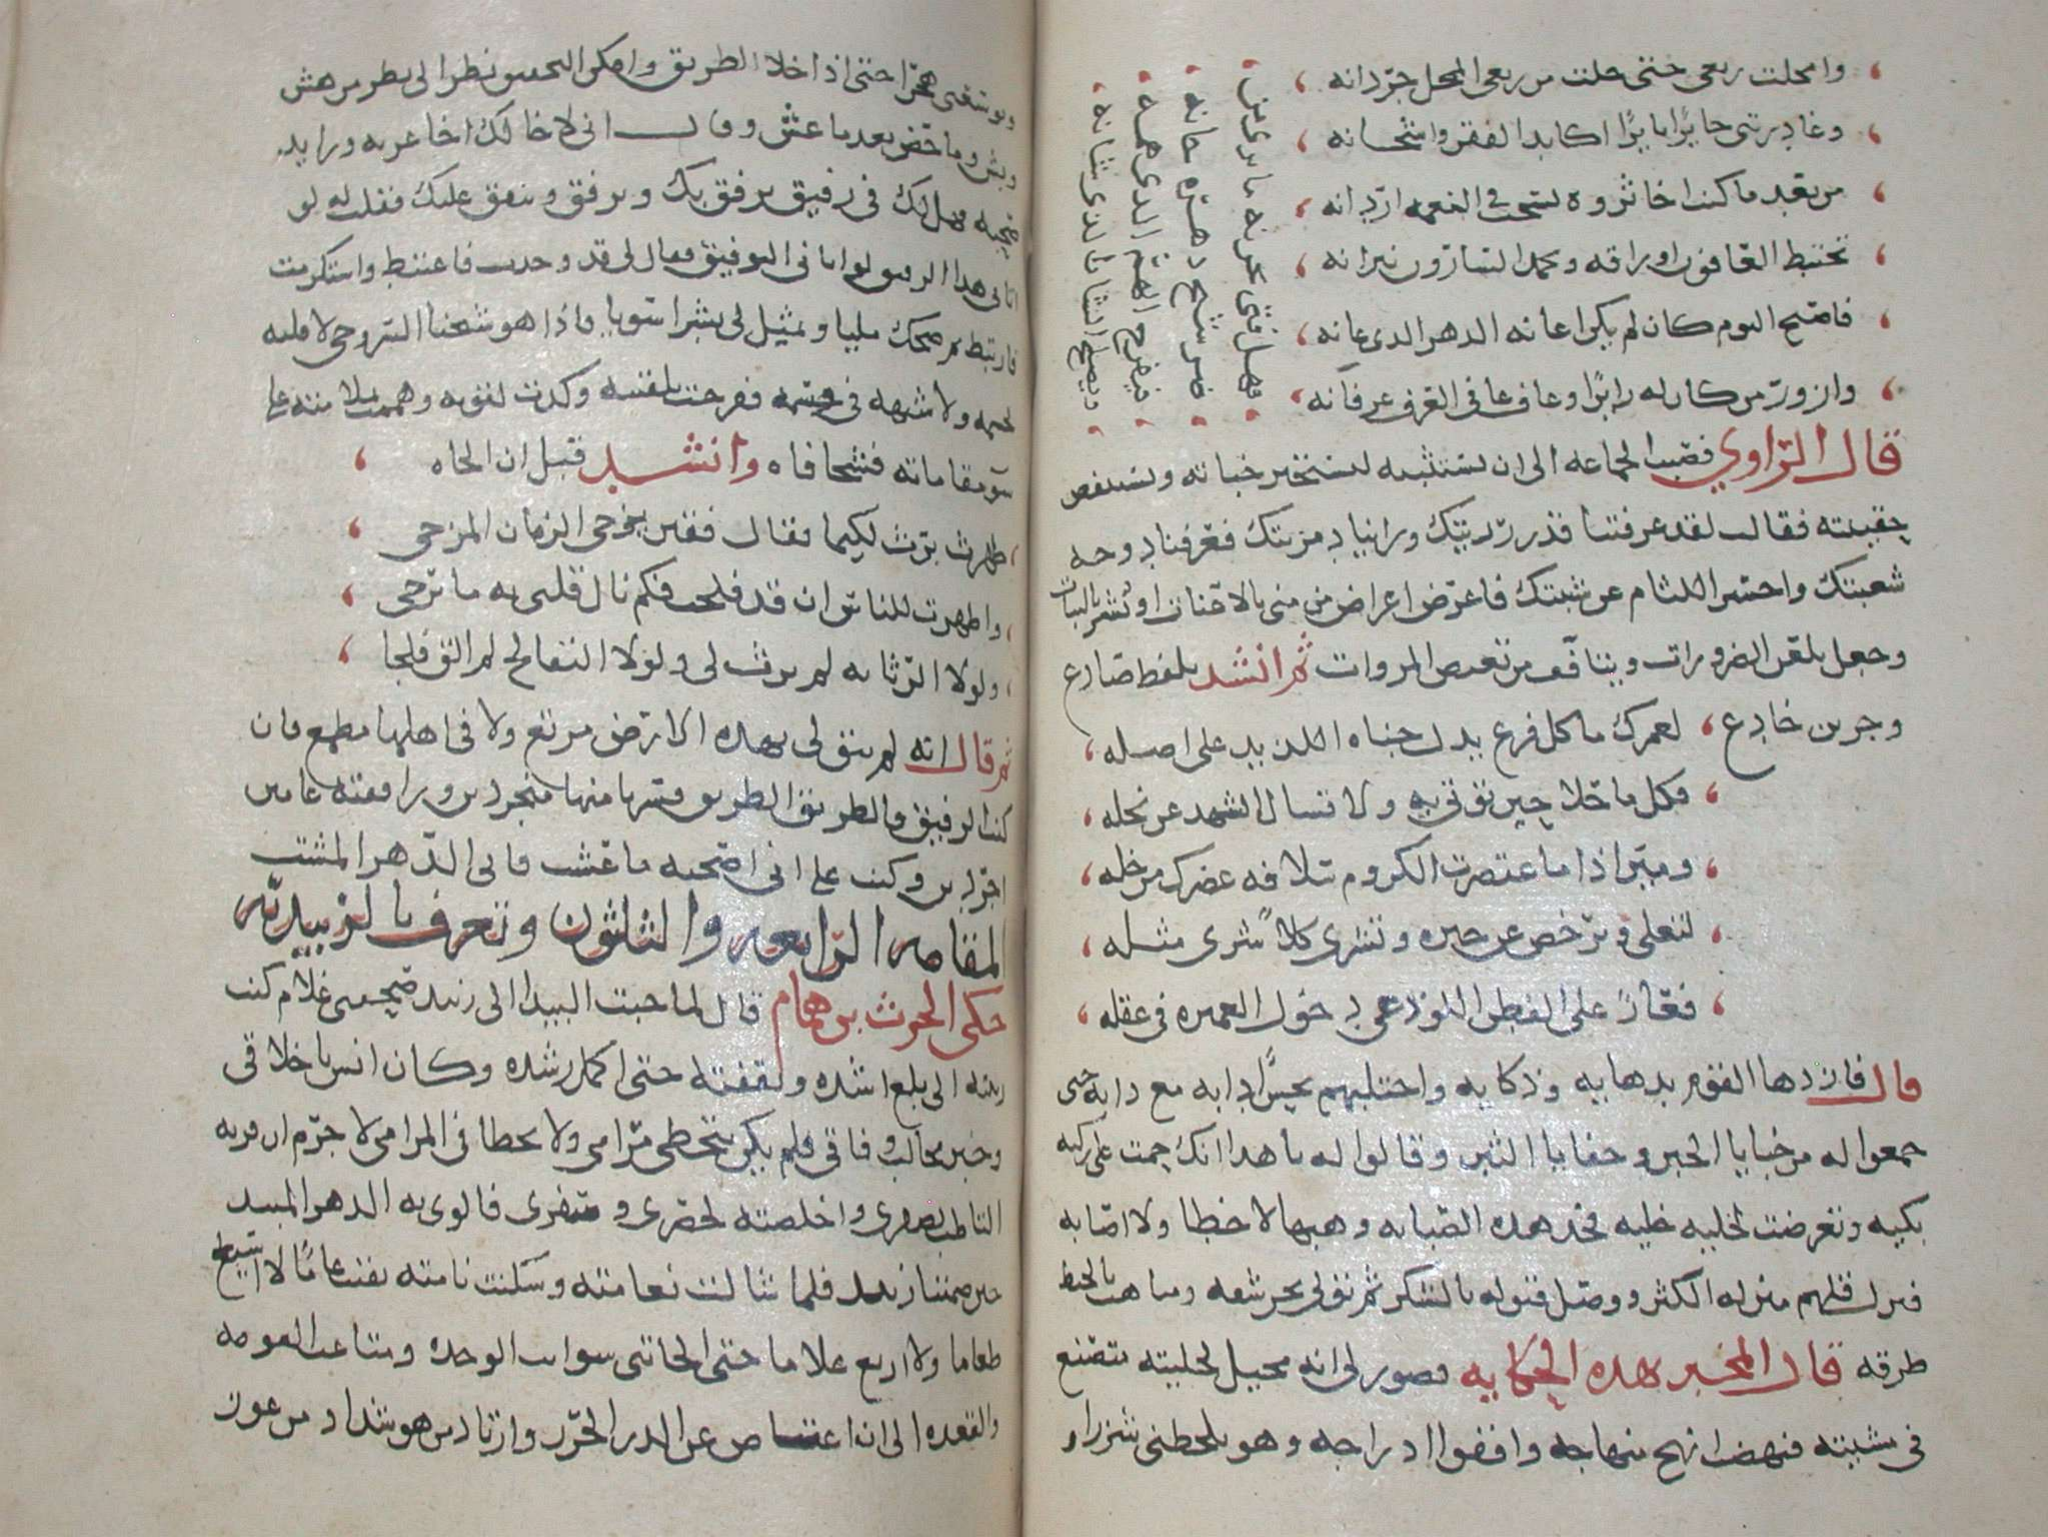 وامحلت ربعى حتى حلت من ربعى المحل جردانه
وغادرتنى حايرًا بايرًا اكابد الفقر واشجانه
من بعد ما كنت اخا ثروه يسحب فى النعمه اردانه
تختبط العافون اوراقه ويحمد السارون نيرانه
فاصبح اليوم كان لم يكن اعانه الدهر الذى عانه
وازور من كان له زايرًا وعاف عافى العرف عرفانه
فهل فتى يحزنه ما يرى من
ضر شيخ دهره خانه
فيفرج الهم الذى همه
ويصلح الشان الذى شانه
قال الراوي فصبت الجماعه الى ان تستثبته لتستنجش خباته وتستنفض
حقيبته فقالت لقد عرفنا قدر رتبتك وراينا در مزنتك فعرفنا دوحه
شعبتك واحسر اللثام عن نسبتك فاعرض اعراض من منى بالاعنات او بشر بالبنات
وجعل يلعن الضرورات ويتافف من تغيض المروات ثم انشد بلفظ صادع
وجرس خادع لعمرك ما كل فرع يدل جناه اللذيذ على اصله
فكل ما حلا حين توتى به ولا تسال الشهد عن نحله
وميز اذا ما اعتصرت الكروم سلافه عصرك من خله
لتغلى وترخص عن خبره وتشرى كلاً شرى مثله
فعار على الفطن اللوذعى دخول الغميزه فى عقله
قال فازدها القوم بدهايه وذكايه واختلبهم بحسن ادايه مع دايه حتى
جمعوا له من خبايا الخبن وخفايا الثبن وقالوا له يا هذا انك حمت على ركيه
بكيه وتعرضت لخليه خليه فخذ هذه الصبابه وهبها لا خطا ولا اصابه
فنزل قلهم منزله الكثر ووصل قبوله بالشكر ثم تولى يجر شقه وينهب بالخبط
طرقه قال المخبر بهذه الحكايه فصور لى انه محيل لحليته متصنع
فى مشيته فنهضت انهج منهاجه واقفوا ادراجه وهو يلحظنى شزرا و
ويوسعنى هجرًا حتى اذا خلا الطريق وامكن التحقيق نظر الى نظر من هش
وبش وماحض بعد ما غش وقال انى لاخالك اخا غربه ورايد
صحبه فهل لك فى رفيق يرفق بك ويرفق وينفق عليك فقلت له لو
اتانى هذا الرفيق لواتانى التوفيق فقال لى قد وجدت فاغتبط واستكرمت
فارتبط ثم ضحك مليا وتمثل لى بشرا سويا فاذا هو شيخنا السروجى لا قلبه
لجسمه ولا شبهه فى وسمه ففرحت بلقيته وكذب لقوته وهممت بملامته على
سو مقاماته فشحا فاه وانشد قبل ان الحاه
ظهرت برث لكيما يقال فقير يزجى الزمان المزجى
واظهرت للناس ان قد فلجت فكم نال قلبى به ما ترجى
ولولا الرثاثه لم يرث لى ولولا التفالج لم الق فلجا
ثم قال انه لم يبق لى بهذه الارض مرتع ولا فى اهلها مطمع فان
كنت الرفيق فالطريق الطريق فسرنا منها متجردين ورافقته عامين
اجردين وكنت على انى اصحبه ما عشت فابى الدهر المشتت
المقامه الرابعه والثلثون وتعرف بالزبيديه
حكى الحرث بن همام قال لما جبت البيدا الى زبيد صحبنى غلام كنت
ربيته الى بلغ اشده وثقفته حتى اكمل رشده وكان انس باخلاقى
وخبر مجالب وفاقى فلم يكن يتخطى مرامى ولا يخطا فى المرامى لا جرم ان قربه
التاطت بصفرى واخلصته لحضرى وسفرى فالوى به الدهر المبيد
حين ضمتنا زبيد فلما شالت نعامته وسكنت نامته بقيت عامًا لا اسيغ
طعاما ولا اريغ غلاما حتى الجاتنى شوايب الوحده ومتاعب القومه
والقعده الى ان اعتاض عن الدر الخرز وارتاد من هو سداد من عوز